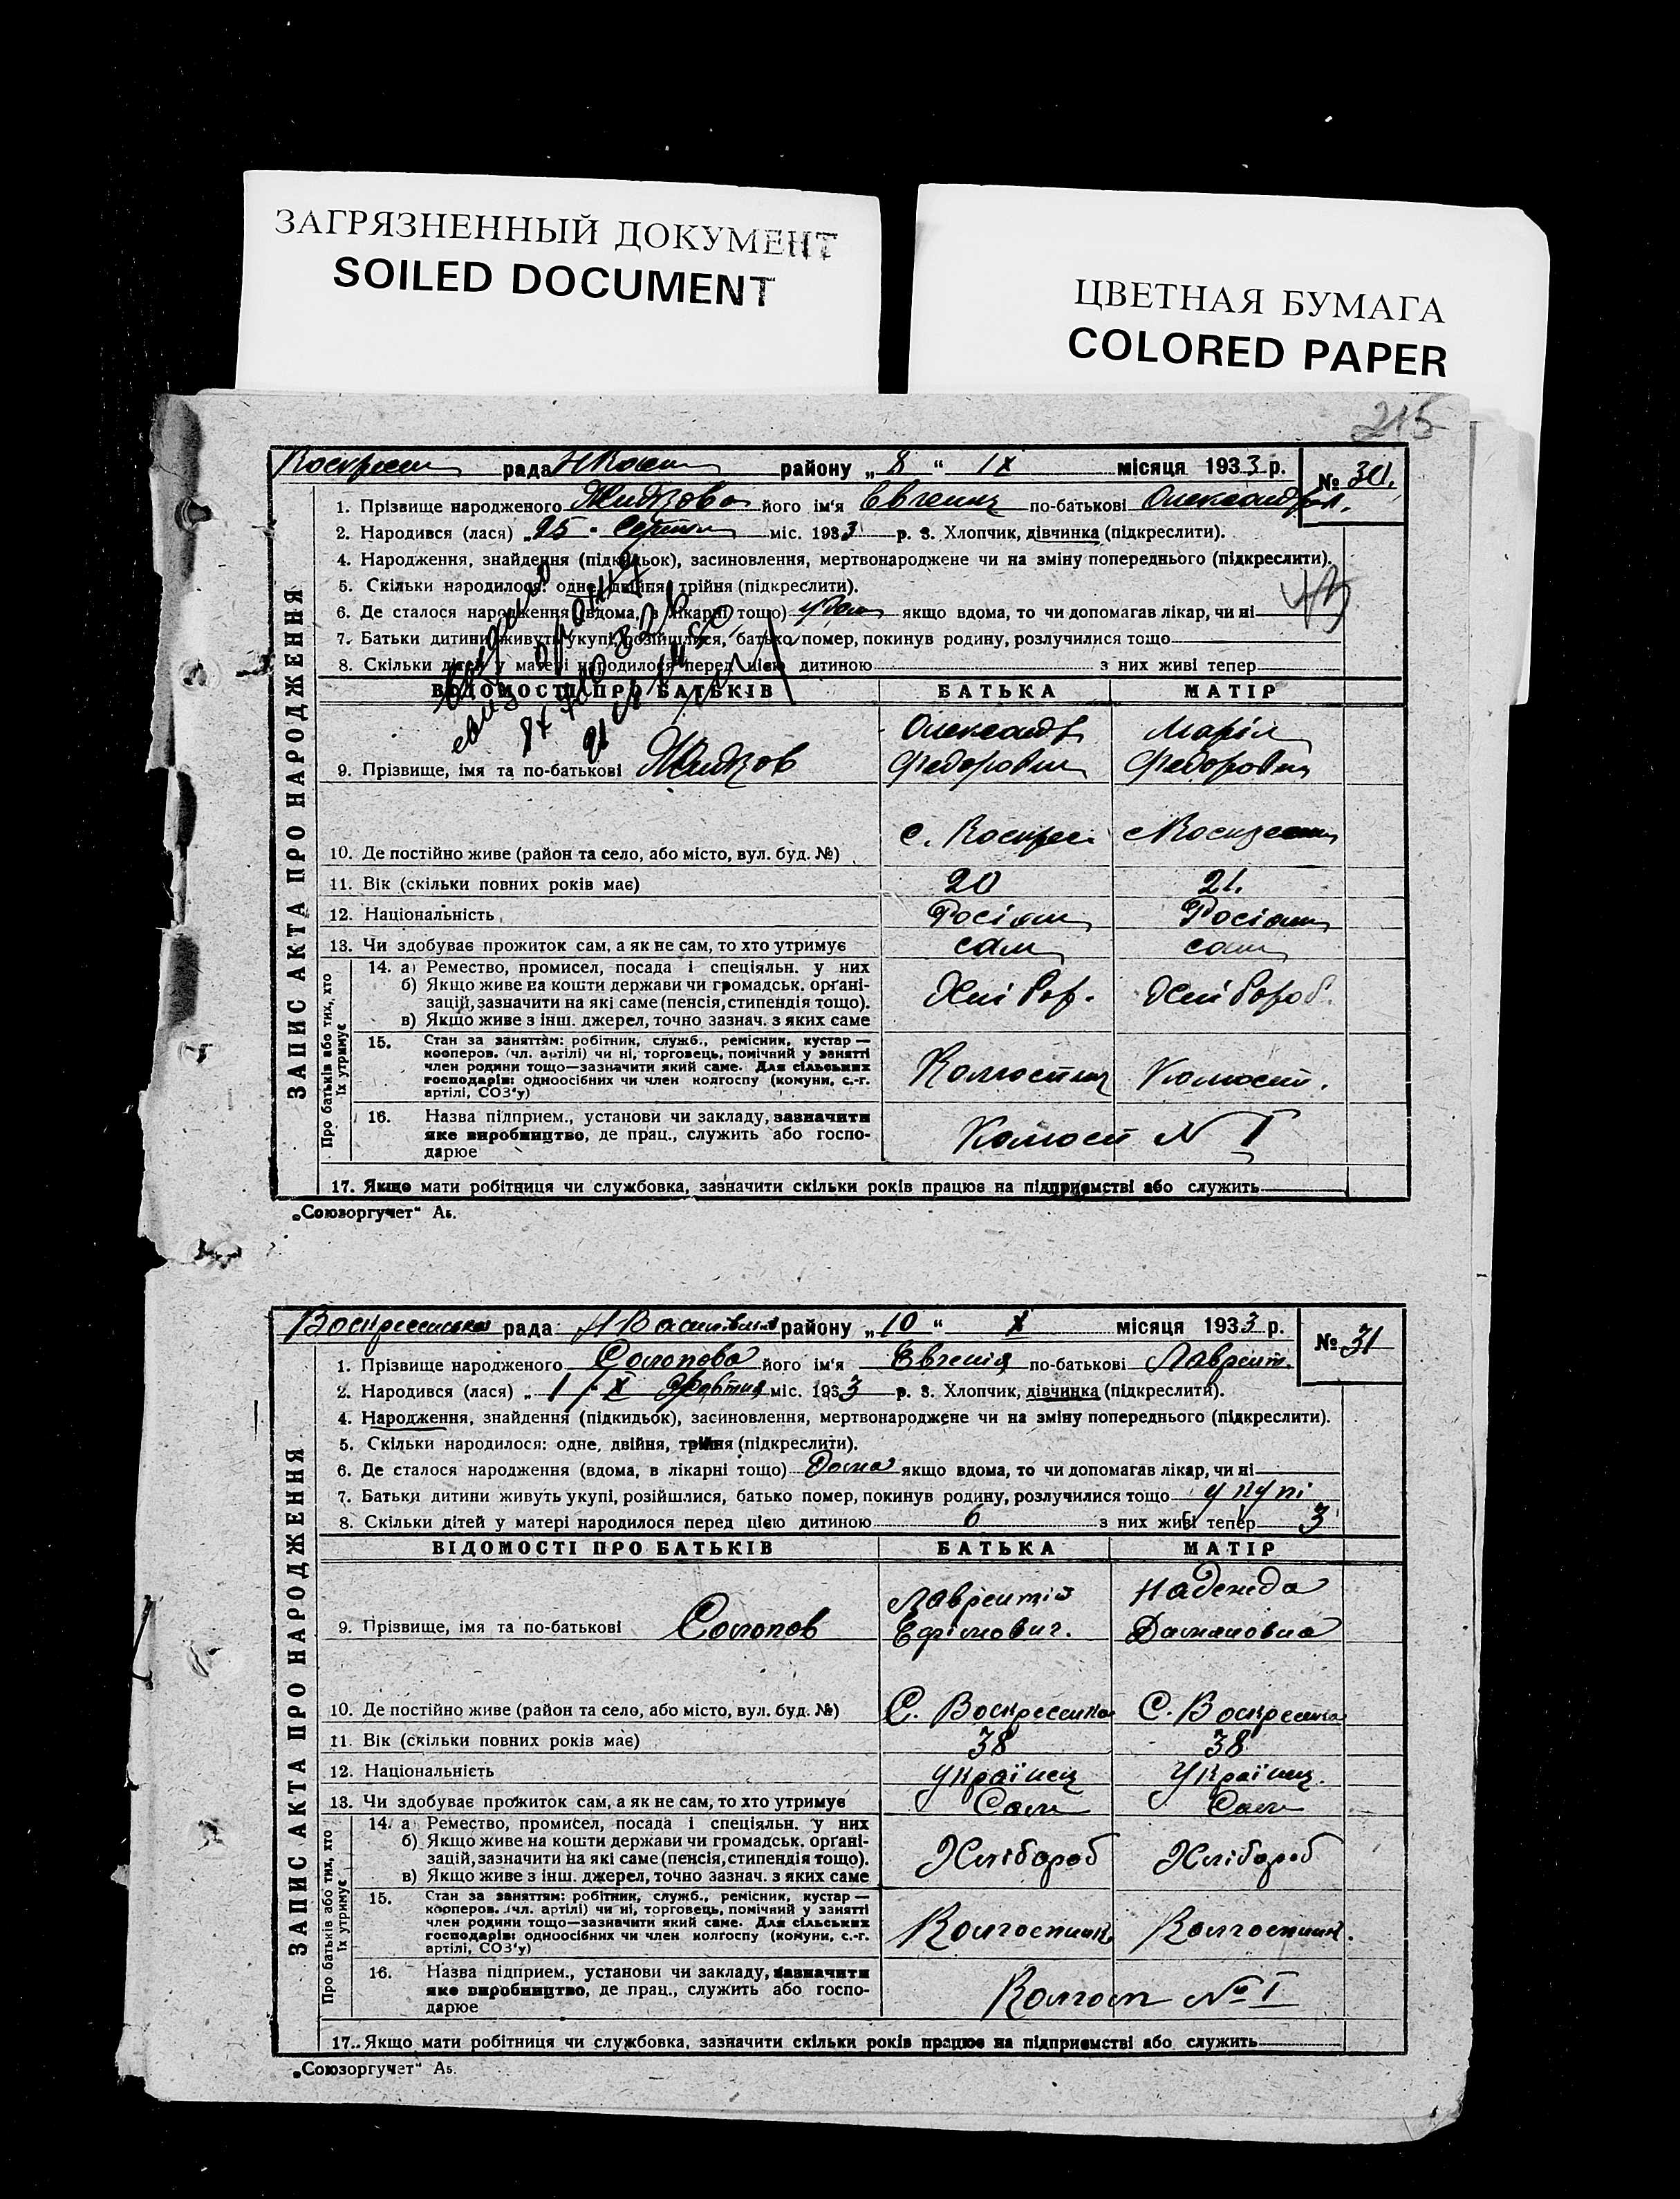 ЗАГРЯЗНЕННЫЙ ДОКУМЕНТ
SOILED DOCUMENT
ЦВЕТНАЯ БУМАГА
COLORED PAPER
215
рада району „8“ IX місяця 1933 р. № 30
1. Прізвище народженого його ім'я Евгения по-батькові Олександров.
2. Народився (лася) „25 міс. 1933 р. 3. Хлопчик, дівчинка (підкреслити).
4. Народження, знайдення (підкидьок), засиновлення, мертвонароджене чи на зміну попереднього (підкреслити).
5. Скільки народилося: одне, двійня, трійня (підкреслити).
6. Де сталося народження (вдома, в лікарні тощо) якщо вдома, то чи допомагав лікар, чи ні
7. Батьки дитини живуть укупі, розійшлися, батько помер, покинув родину, розлучилися тощо
8. Скільки дітей у матері народилося перед цією дитиною з них живі тепер
ВІДОМОСТІ ПРО БАТЬКІВ БАТЬКА МАТІР
Олександр Марія
9. Прізвище, імя та по-батькові Федорович Федоровна
10. Де постійно живе (район та село, або місто, вул. буд. №)
11. Вік (скільки повних років має) 20 21.
12. Національність Росіян Росіян
13. Чи здобуває прожиток сам, а як не сам, то хто утримує сам сам
14. а) Ремество, промисел, посада і спеціяльн. у них
б) Якщо живе на кошти держави чи громадськ. орґані-
зацій, зазначити на які саме (пенсія, стипендія тощо).
в) Якщо живе з інш. джерел, точно зазнач. з яких саме
Хлібор. Хлібороб.
15. Стан за заняттям: робітник, служб., ремісник, кустар—
кооперов. (чл. артілі) чи ні, торговець, помічний у занятті
член родини тощо—зазначити який саме. Для сільських
господарів: одноосібних чи член колгоспу (комуни, с.-г.
артілі, СОЗ'у)
Колгоспник Колгосп.
16. Назва підприєм., установи чи закладу, зазначити
яке виробництво, де прац., служить або госпо-
дарює
Колгосп № I
17. Якщо мати робітниця чи службовка, зазначити скільки років працює на підприємстві або служить
ЗАПИС АКТА ПРО НАРОДЖЕННЯ
Про батьків або тих, хто їх утримує
„Союзоргучет“ Аь.
Воскресенська рада району „10“ X місяця 1933 р. № 31
1. Прізвище народженого Солопова його ім'я Евгенія по-батькові Лаврент.
2. Народився (лася) „1/X Жовтня міс. 1933 р. 3. Хлопчик, дівчинка (підкреслити).
4. Народження, знайдення (підкидьок), засиновлення, мертвонароджене чи на зміну попереднього (підкреслити).
5. Скільки народилося: одне, двійня, трійня (підкреслити).
6. Де сталося народження (вдома, в лікарні тощо) Дома якщо вдома, то чи допомагав лікар, чи ні
7. Батьки дитини живуть укупі, розійшлися, батько помер, покинув родину, розлучилися тощо укупі
8. Скільки дітей у матері народилося перед цією дитиною 6 з них живі тепер 3
ВІДОМОСТІ ПРО БАТЬКІВ БАТЬКА МАТІР
Лаврентій Надежда
9. Прізвище, імя та по-батькові Солопов Ефімович. Дамановна
10. Де постійно живе (район та село, або місто, вул. буд. №) С. Воскресенка С. Воскресенка
11. Вік (скільки повних років має) 38 38
12. Національність Українец Українец.
13. Чи здобуває прожиток сам, а як не сам, то хто утримує Сам Сам
14. а Ремество, промисел, посада і спеціяльн. у них
б) Якщо живе на кошти держави чи громадськ. орґані-
зацій, зазначити на які саме (пенсія, стипендія тощо).
в) Якщо живе з інш. джерел, точно зазнач. з яких саме
Хлібороб Хлібороб
15. Стан за заняттям: робітник, служб., ремісник, кустар—
кооперов. (чл. артілі) чи ні, торговець, помічний у занятті
член родини тощо—зазначити який саме. Для сільських
господарів: одноосібних чи член колгоспу (комуни, с.-г.
артілі, СОЗ'у)
Колгоспник Колгоспник.
16. Назва підприєм., установи чи закладу, зазначити
яке виробництво, де прац., служить або госпо-
дарює
Колгосп № I
17. Якщо мати робітниця чи службовка, зазначити скільки років працює на підприємстві або служить
ЗАПИС АКТА ПРО НАРОДЖЕННЯ
Про батьків або тих, хто їх утримує
„Союзоргучет“ Аь.